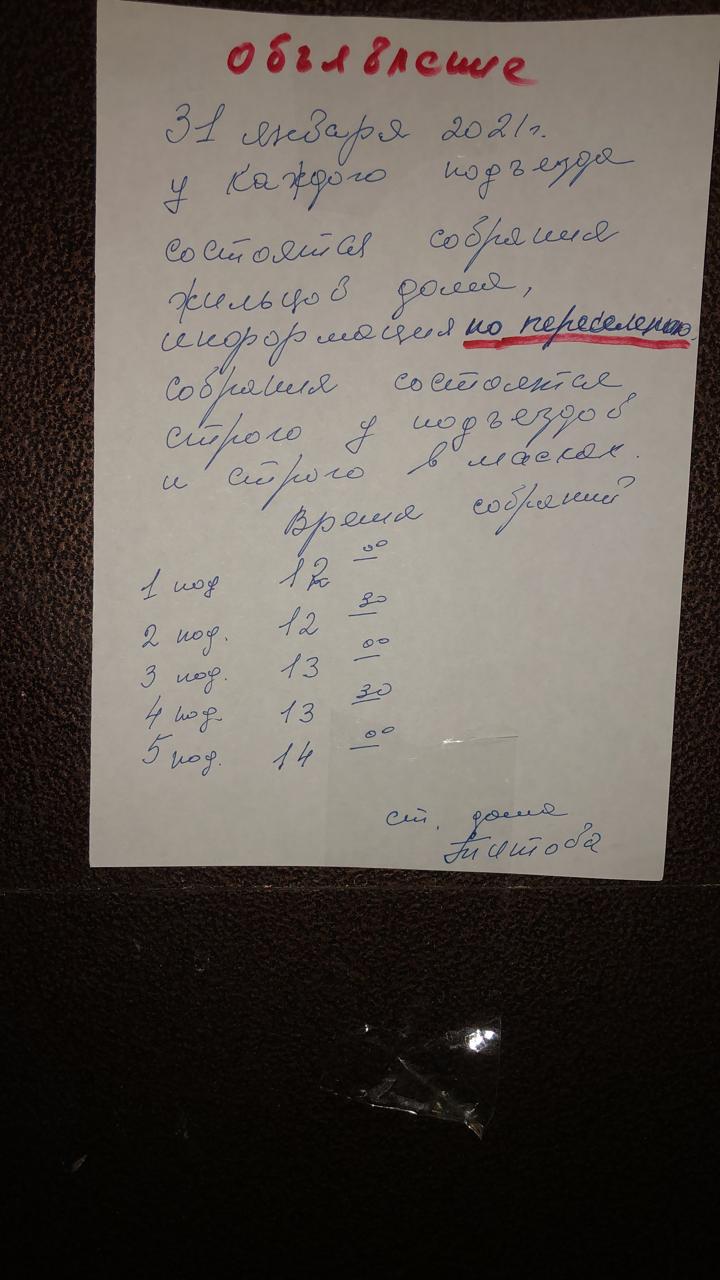 Объявление
31 января 2021г.
у каждого подъезда
состоятся собрания
жильцов дома,
информация по переселению.
собрания состоятся
строго у подъездов
и строго в масках.
Время собраний
1 под 12 00
2 под. 12 30
3 под. 13 00
4 под. 13 30
5 под. 14 00
ст. дома